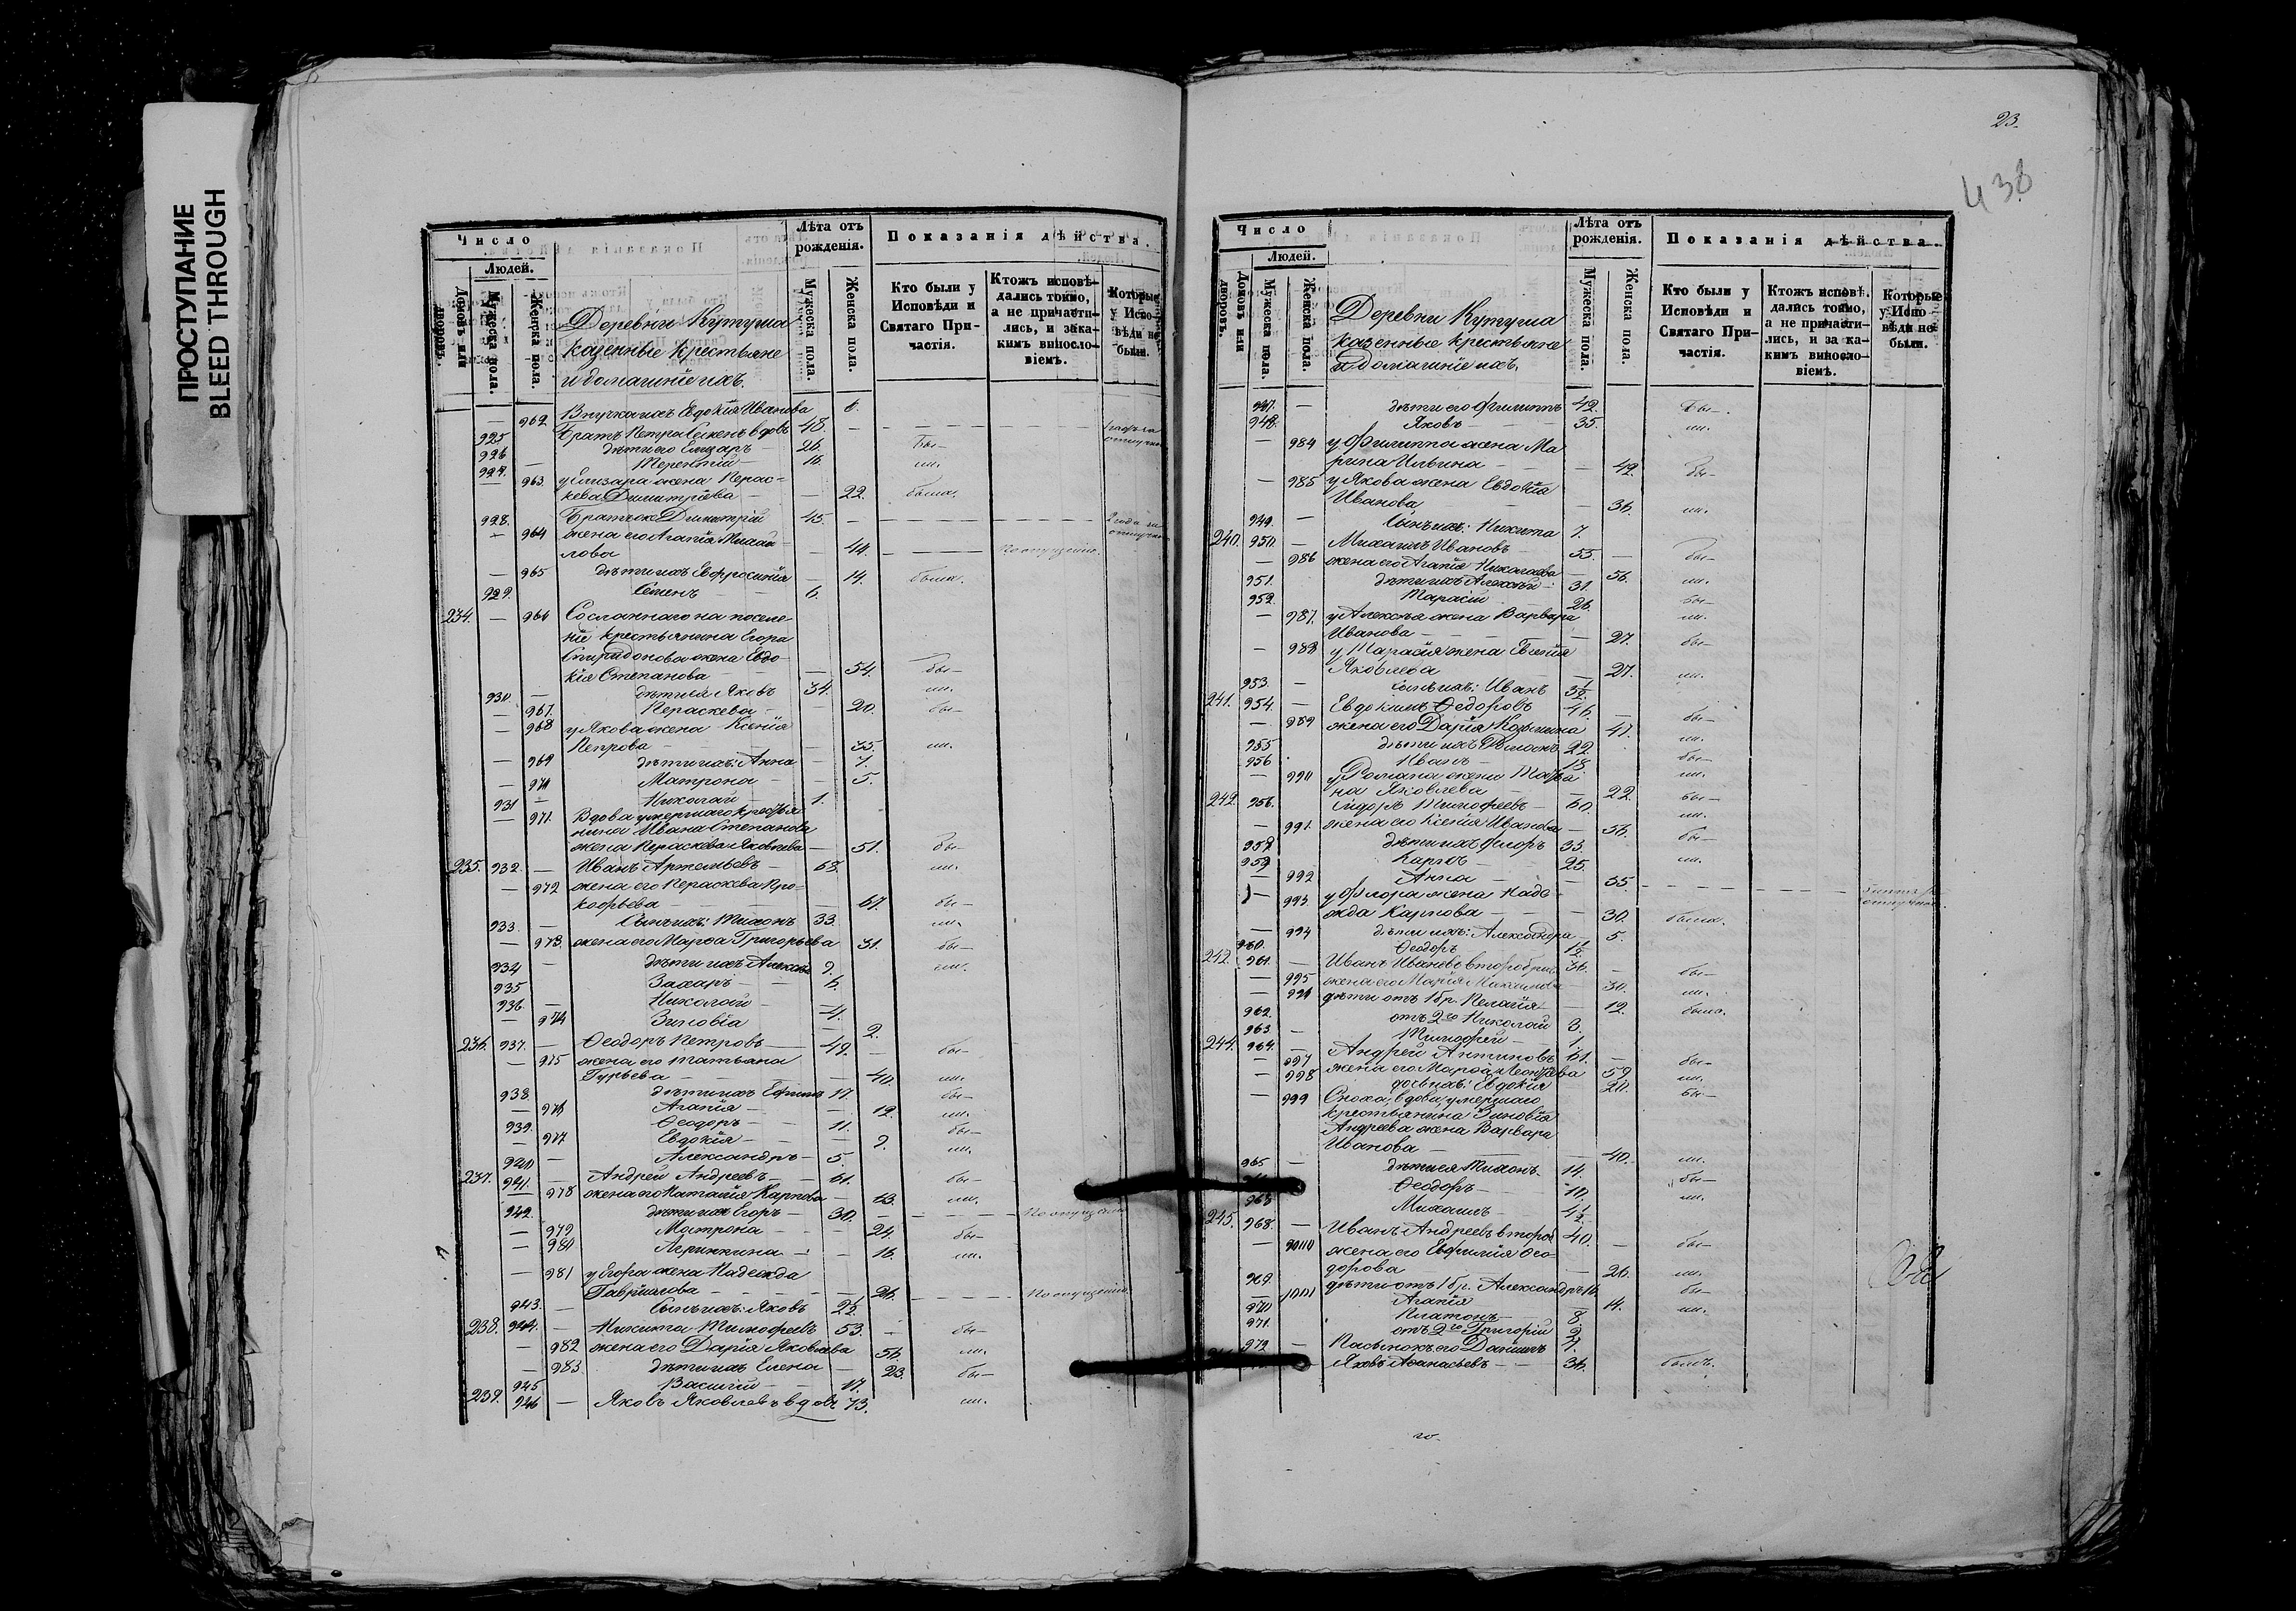 ПРОСТУПАНИЕ
BLEED THROUGH
Число
Людей.
Домовъ или дворовъ.
Мужеска пола.
Женска пола.
Деревни Кутума
казенные крестьяне
и домашніе ихъ.
Лѣта отъ рожденія.
Мужеска пола.
Женска пола.
Показанія дѣйства.
Кто были у Исповѣди и Святаго Причастія.
Ктожъ исповѣдались токмо, а не причастились, и за какимъ винословіемъ.
Которые у Исповѣди не были.
962 Внучка ихъ Евдокія Иванова 6.
925 Братъ Петра Семенъ вдовъ 48.
926 дѣти его Елизаръ 26. бы—
927 Терентій 16. ли.
963 у Елизара жена Парас=
кева Димитріева 22. была.
928. Братъ ж Димитрій 45.
964 жена его Агапія Михай
лова 44. По опущенію.
965 дѣти ихъ Евфросинія 14. была.
929. Семенъ 6.
234. 966 Сосланнаго на поселе
ніе крестьянина Егора
Спиридонова жена Евдо
кія Степанова 54. бы—
930. дѣти ея Яковъ 34. ли.
967. Параскева 20. бы—
968 у Якова жена Ксенія
Петрова 35. ли.
969 дѣти ихъ: Анна 7.
970 Матрона 5.
931 Николай 1.
971. Вдова умершаго крестья
нина Ивана Степанова
жена Параскева Яковлева 51. бы—
235. 932. Иванъ Артемьевъ 63. ли.
972 жена его Параскева Про=
кофьева 61. бы—
933. Сынъ ихъ: Тихонъ 33. ли.
973. жена его Марѳа Григорьева 31. бы—
934 дѣти ихъ Алексѣй 9. ли.
935 Захаръ 6.
936. Николай 4.
974 Зиновія 2.
236. 937. Ѳеодоръ Петровъ 49. бы—
975 жена его Татьяна
Гурьева 40. ли.
938. дѣти ихъ Ефимъ 17. бы—
976 Агапія 12. ли.
939. Ѳеодоръ 11. бы—
977 Евдокія 9. ли.
940 Александръ 5.
237. 941. Андрей Андреевъ 61. бы—
978 жена его Наталія Карпова 63. ли.
942. дѣти ихъ Егоръ 30. По опущенію
979 Матрона 24. бы—
980 Агрипина 16. ли.
981 у Егора жена Надежда
Гавриилова 26. По опущенію.
943. Сынъ ихъ: Яковъ 2½.
238. 944. Никита Тимофеевъ 53. бы—
982 жена его Дарія Яковлева 56. ли.
983. дѣти ихъ Елена 23. бы—
945 Василій 17.
239. 946 Яковъ Яковлевъ вдовъ 73. ли.
23.
438
Число
Людей.
Домовъ или дворовъ.
Мужеска пола.
Женска пола.
Деревни Кутума
казенные крестьяне
и домашніе ихъ.
Лѣта отъ рожденія.
Мужеска пола.
Женска пола.
Показанія дѣйства.
Кто были у Исповѣди и Святаго Причастія.
Ктожъ исповѣдались токмо, а не причастились, и за какимъ винословіемъ.
Которые у Исповѣди не были.
947. дѣти его Филиппъ 42. бы—
948. Яковъ 35. ли.
984 у Филиппа жена Ма
рина Ильина 42. бы—
985 у Якова жена Евдокія
Иванова 36. ли.
949. Сынъ ихъ: Никита 7.
240. 950. Михаилъ Ивановъ 55. бы—
986 жена его Агапія Николаева 56. ли.
951. дѣти ихъ Алексѣй 31. бы—
952. Тарасій 26. ли.
987. у Алексѣя жена Варвара
Иванова 27. бы—
988 у Тарасія жена Евгенія
Яковлева 27. ли.
953. сынъ ихъ: Иванъ 3½.
241. 954. Евдокимъ Ѳедоровъ 46. бы—
989 жена его Дарія Козьмина 47. ли.
955 дѣти ихъ Романъ 22. бы—
956 Иванъ 18. ли.
990 у Романа жена Татья
на Яковлева 22. бы—
242. 956. Сидоръ Тимофеевъ 60. ли.
991. жена его Ксенія Иванова 56. бы—
958. дѣти ихъ Флоръ 33. ли.
959 Карпъ 25.
992 Анна 35.
993. у Флора жена Наде
жда Карпова 30. была.
994 дѣти ихъ: Александра 5.
960. Ѳеодоръ 1½.
242. 961. Иванъ Ивановъ второбрач 36. бы—
995 жена его Марія Михайлова 30. ли.
996 дѣти отъ 1 бр. Пелагія 12. была.
962. отъ 2го Николай 3.
963. Тимофей 1.
244. 964. Андрей Антиповъ 61. бы—
997 жена его Марѳа Леонтьева 59 ли.
998 дочь ихъ: Евдокія 20. бы—
999 Сноха, вдова, умершаго
крестьянина Зиновія
Андреева жена Варвара
Иванова 40. ли.
965 дѣти ея Тихонъ 14. бы—
Ѳеодоръ 10. ли.
Михаилъ 4½.
245. 968. Иванъ Андреевъ второй 40. бы—
1000 жена его Евфимія Ѳео
дорова 26. ли.
969. дѣти отъ 1 бр. Александръ 16. бы—
1001 Агапія 14. ли.
970 Платонъ 8.
971. отъ 2го Григорій 2.
972 Пасынокъ его Даніилъ 7.
Яковъ Аѳанасьевъ 36. былъ.